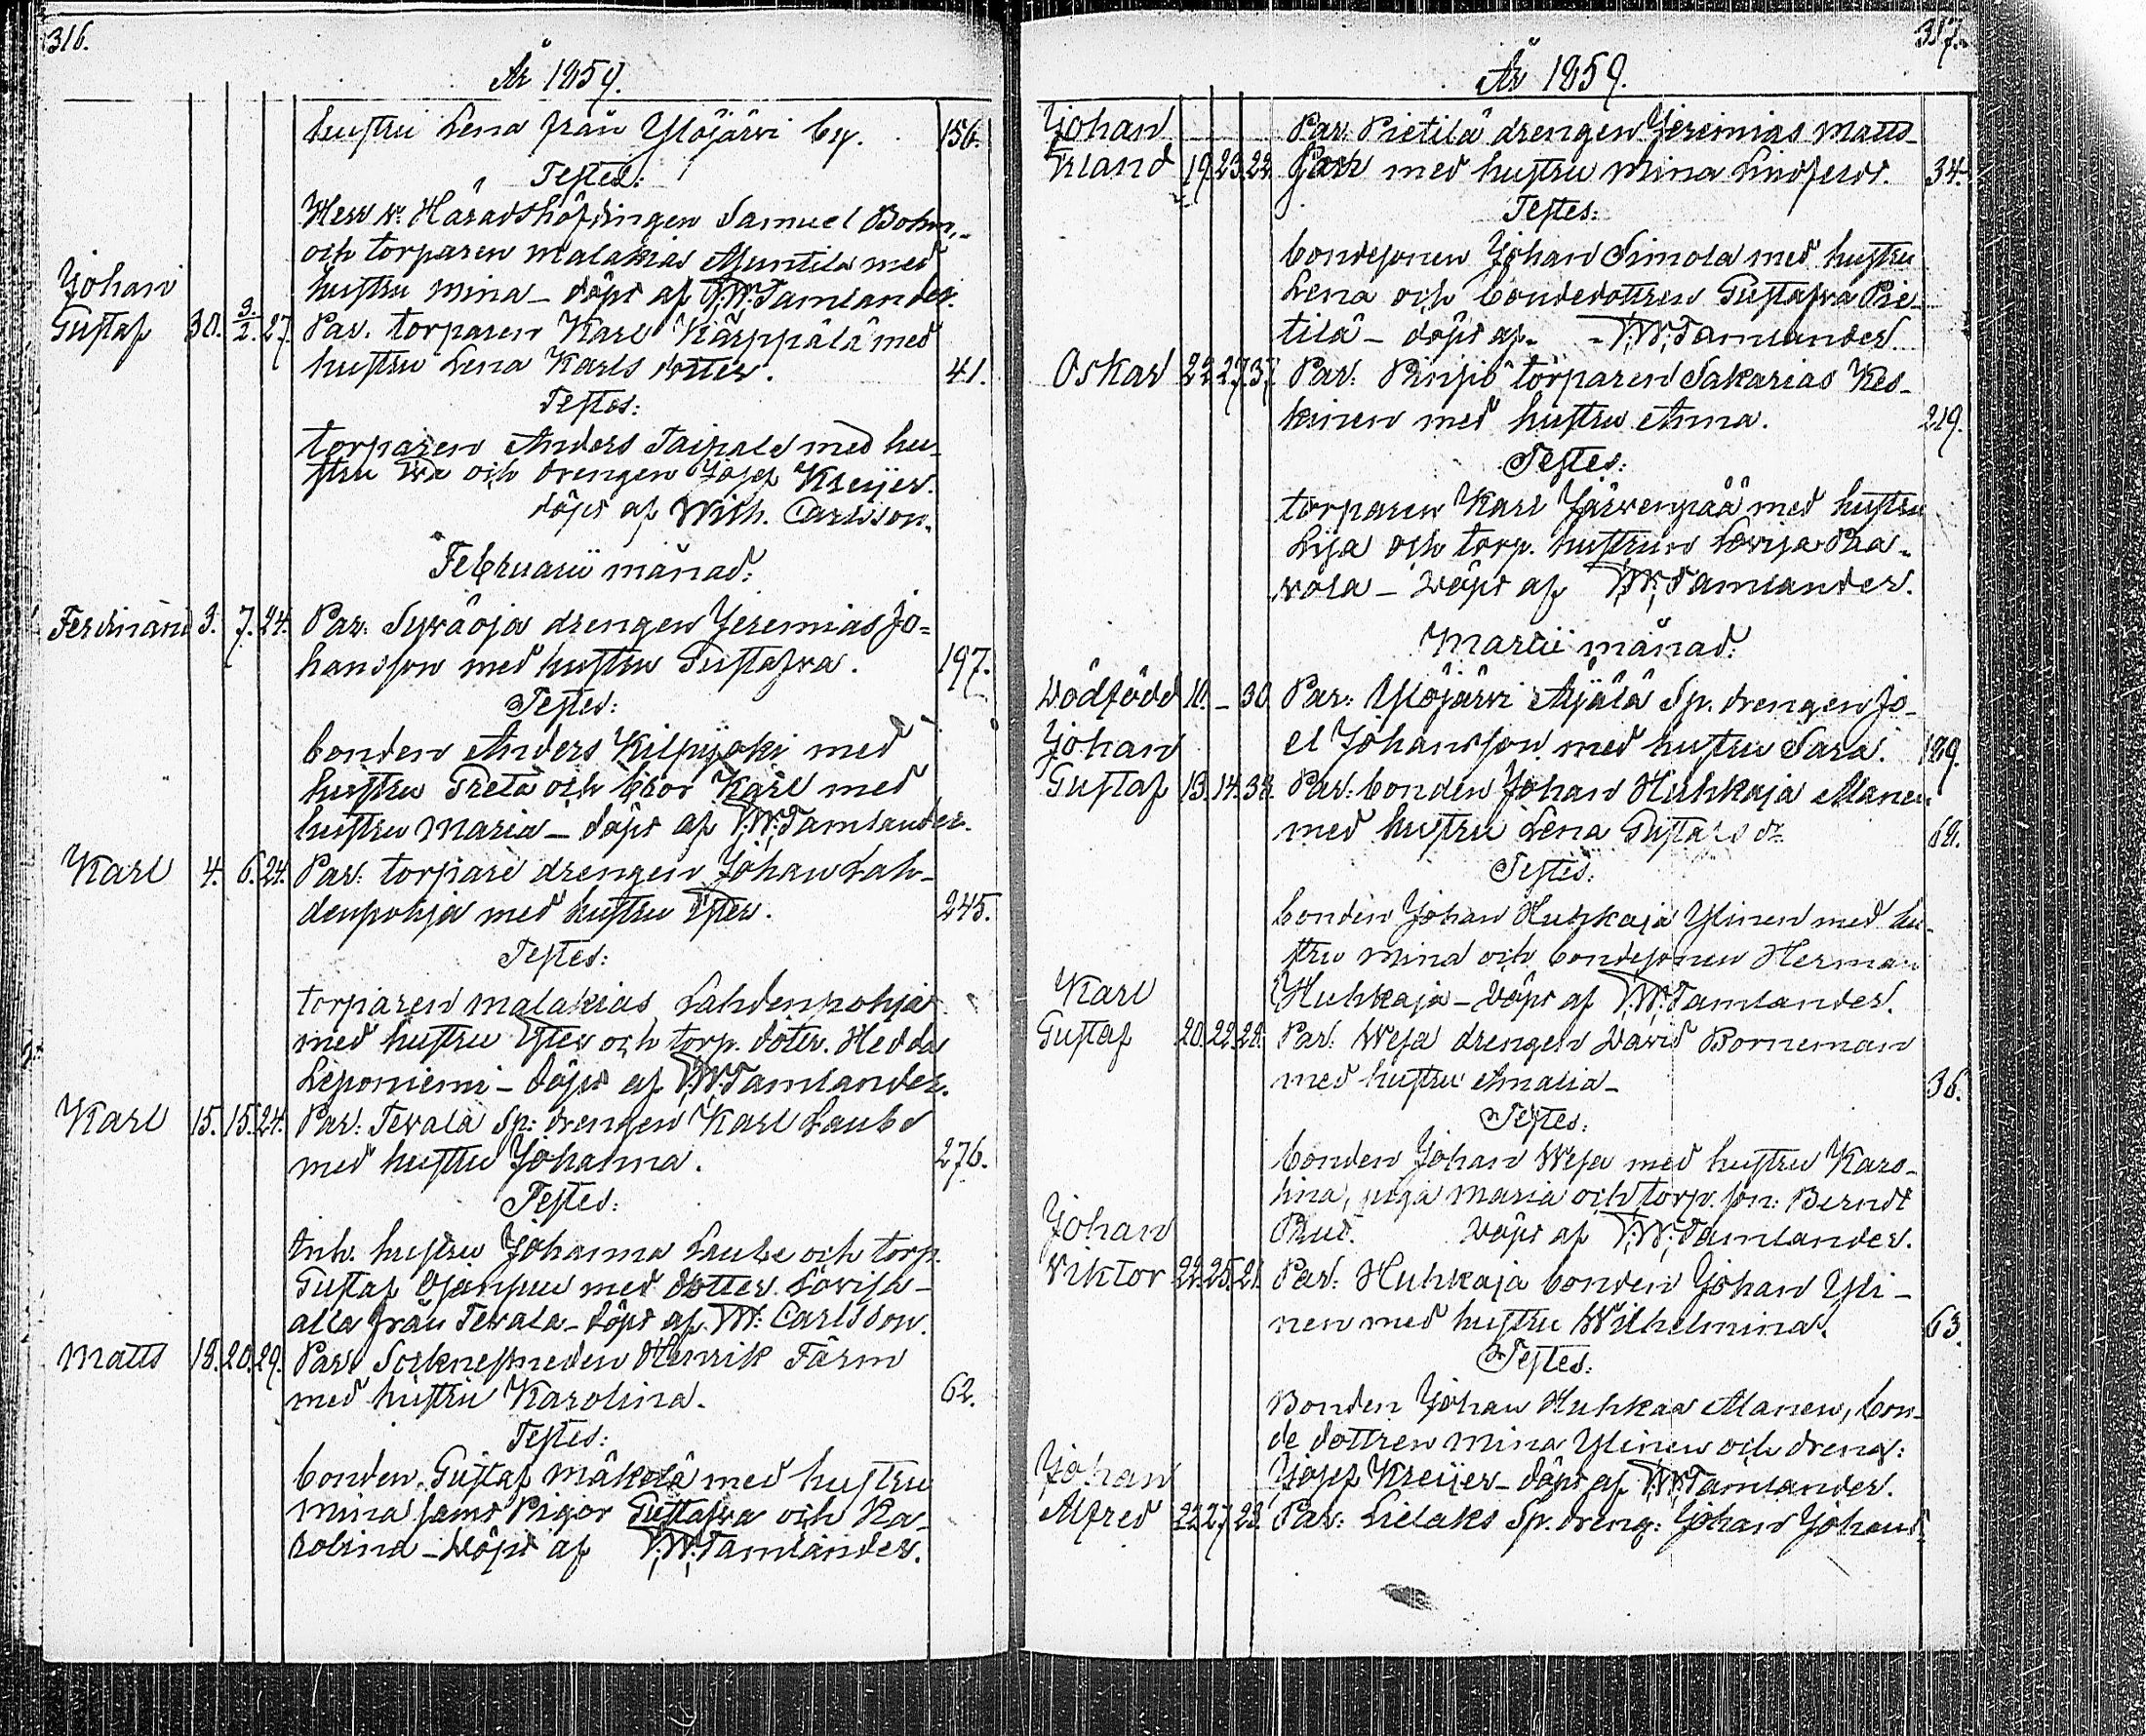 316.
År 1859.
hustru Lena från Ylöjärvi by. 156.
Testes:
Herr v. Häradshöfdingen Samuel Bohm,
och torparen Malakias Muntila med
Johan hustru Mina - döpt af V.W. Tamlander.
Gustaf 30. 3/2. 27. Par. torparen Karl Kärppälä med
hustru Lena Karls dotter. 41.
Testes:
torparen Anders Taipale med hu-
stru Eva och drengen Josef Kreijer.
döpt af Wilh. Carlsson.
Februarii månad:
Ferdinand 3. 7. 24. Par: Syväoja drengen Jeremias Jo=
hansson med hustru Gustafva. 197.
Testes:
bonden Anders Kilpijoki med
hustru Greta och bror Karl med
hustru Maria - döpt af V.W. Tamlander.
Karl 4. 6. 24. Par: torpare drengen Johan Lah-
denpohja med hustru Ester. 245.
Testes:
torparen Malakias Lahdenpohja
med hustru Ester och torp. doter. Hedda
Leponiemi - döpt af V.W. Tamlander.
Karl 15. 15. 24. Par: Tevala Sp: drengen Karl Laube
med hustru Johanna. 276.
Testes:
Inh. hustru Johanna Laube och torp.
Gustaf Ojanpee med dotter Lovisa -
alla från Tevala - döpt af W: Carlsson.
Matts 18. 20. 29. Par: Socknesmeden Henrik Färm
med hustru Karolina. 62.
Testes:
bonden Gustaf Mäkelä med hustru
Mina samt Pigor Gustafva och Ka-
rolina - Döpt af V.W. Tamlander.
317.
År 1859.
Johan Par: Pietilä drengen Jeremias Matts-
Erland 19. 23. 22. son med hustru Mina Lindfors. 34.
Testes:
bondesonen Johan Simola med hustru
Lena och bondedottren Gustafva Pie-
tilä - döpt af - V.W. Tamlander.
Oskar 22. 27. 37. Par: Pinsiö torparen Sakarias Kes-
kinen med hustru Anna. 219.
Testes:
torparen Karl Järvenpää med hustru
Lisa och torp. hustrun Lovisa Paa-
vola - Döpt af V.W. Tamlander.
Martii månad:
Dödfödd 11. - 30. Par: Ylöjärvi Äijälä Sp. drengen Jo-
Johan el Johansson med hustru Sara. 189.
Gustaf 13. 14. 34. Par: bonden Johan Huhkaja Alanen
med hustru Lena Gustafs dr. 62.
Testes:
bonden Johan Huhkaja Ylinen med hu-
stru Mina och bondesonen Herman
Karl Huhkaja - Döpt af V.W. Tamlander.
Gustaf 20. 22. 28. Par: Wesa drengen David Borneman
med hustru Amalia - 36.
Testes:
bonden Johan Wesa med hustru Karo-
lina, piga Maria och torp. son: Berndt
Johan Döpt af V.W. Tamlander.
Viktor 22. 25. 21. Par: Huhkaja bonden Johan Yli-
nen med hustru Wilhelmina. 63.
Testes:
Bonden Johan Huhkaa Alanen, bon-
de dottren Mina Ylinen och dreng:
Johan Josef Kreijer - döpt af V.W. Tamlander.
Alfred 22. 27. 23. Par: Lielaks Sp. dreng: Johan Johans-